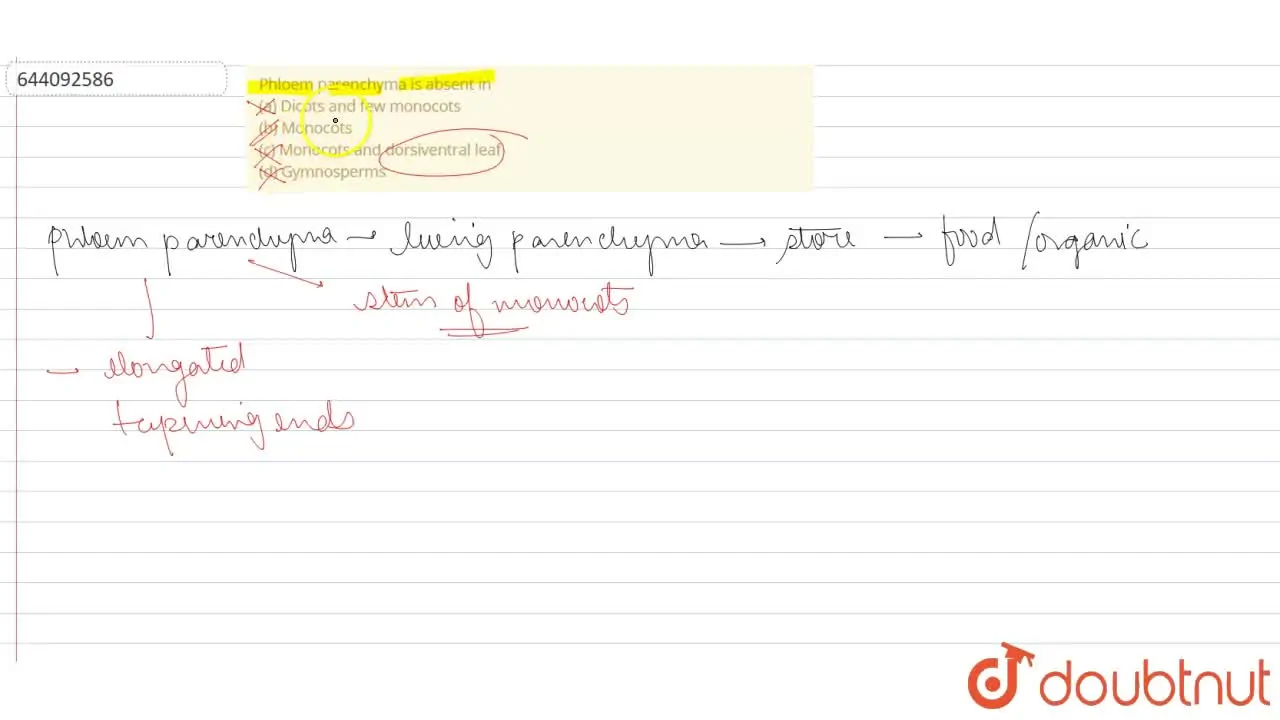 644092586
Phloem parenchyma is absent in
(a) Dicots and few monocots
(b) Monocots
(c) Monocots and dorsiventral leaf
(d) Gymnosperms
phloem parenchyma → living parenchyma → store → food /organic
stem of monocots
→ elongated
tapering ends
doubtnut